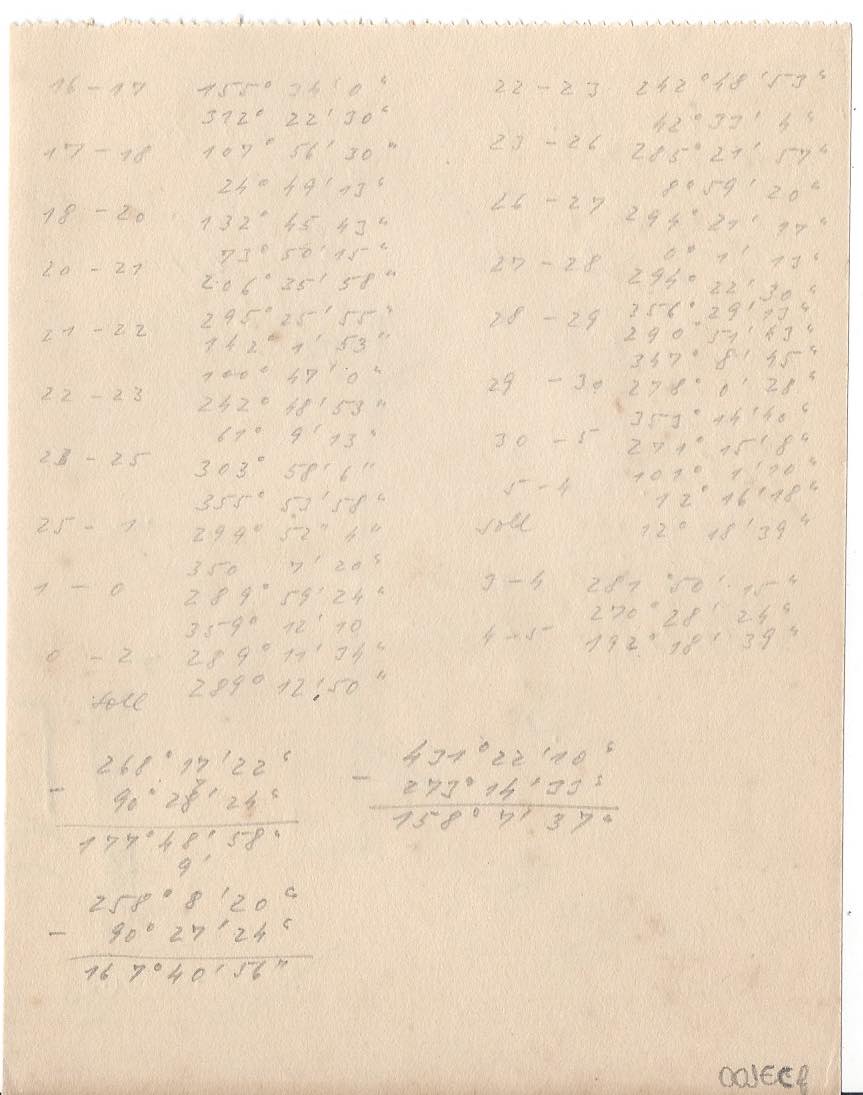 16 - 17 155° 34' 0"
312° 22' 30"
17 - 18 107° 56' 30"
24° 49' 13"
18 - 20 132° 45 43"
73° 50' 15"
20 - 21 206° 35' 58"
295° 25' 55"
21 - 22 142° 1' 53"
100° 47' 0"
22 - 23 242° 48' 53"
61° 9' 13"
23 - 25 303° 58' 6"
355° 53' 58"
25 - 1 299° 52" 4"
350 7' 20"
1 - 0 289° 59' 24"
359° 12' 10
0 - 2 289° 11' 34"
soll 289° 12' 50"
22 - 23 242° 48' 53"
42° 33' 4"
23 - 26 285° 21' 57"
8° 59' 20"
26 - 27 294° 21' 17"
0° 1' 13"
27 - 28 294° 22' 30"
356° 29' 13"
28 - 29 290° 51' 43"
347° 8' 45"
29 - 30 278° 0' 28"
353° 14' 40"
30 - 5 271° 15' 8"
101° 1' 10"
5 - 4 12° 16' 18"
soll 12° 18' 39"
3 - 4 281° 50' 15"
270° 28' 24"
4 - 5 192° 18' 39"
268° 17' 22"
- 90° 28' 24"
177° 48' 58"
9'
258° 8' 20"
- 90° 27' 24"
167° 40' 56"
431° 22' 10"
- 273° 14' 33"
158° 7' 37"